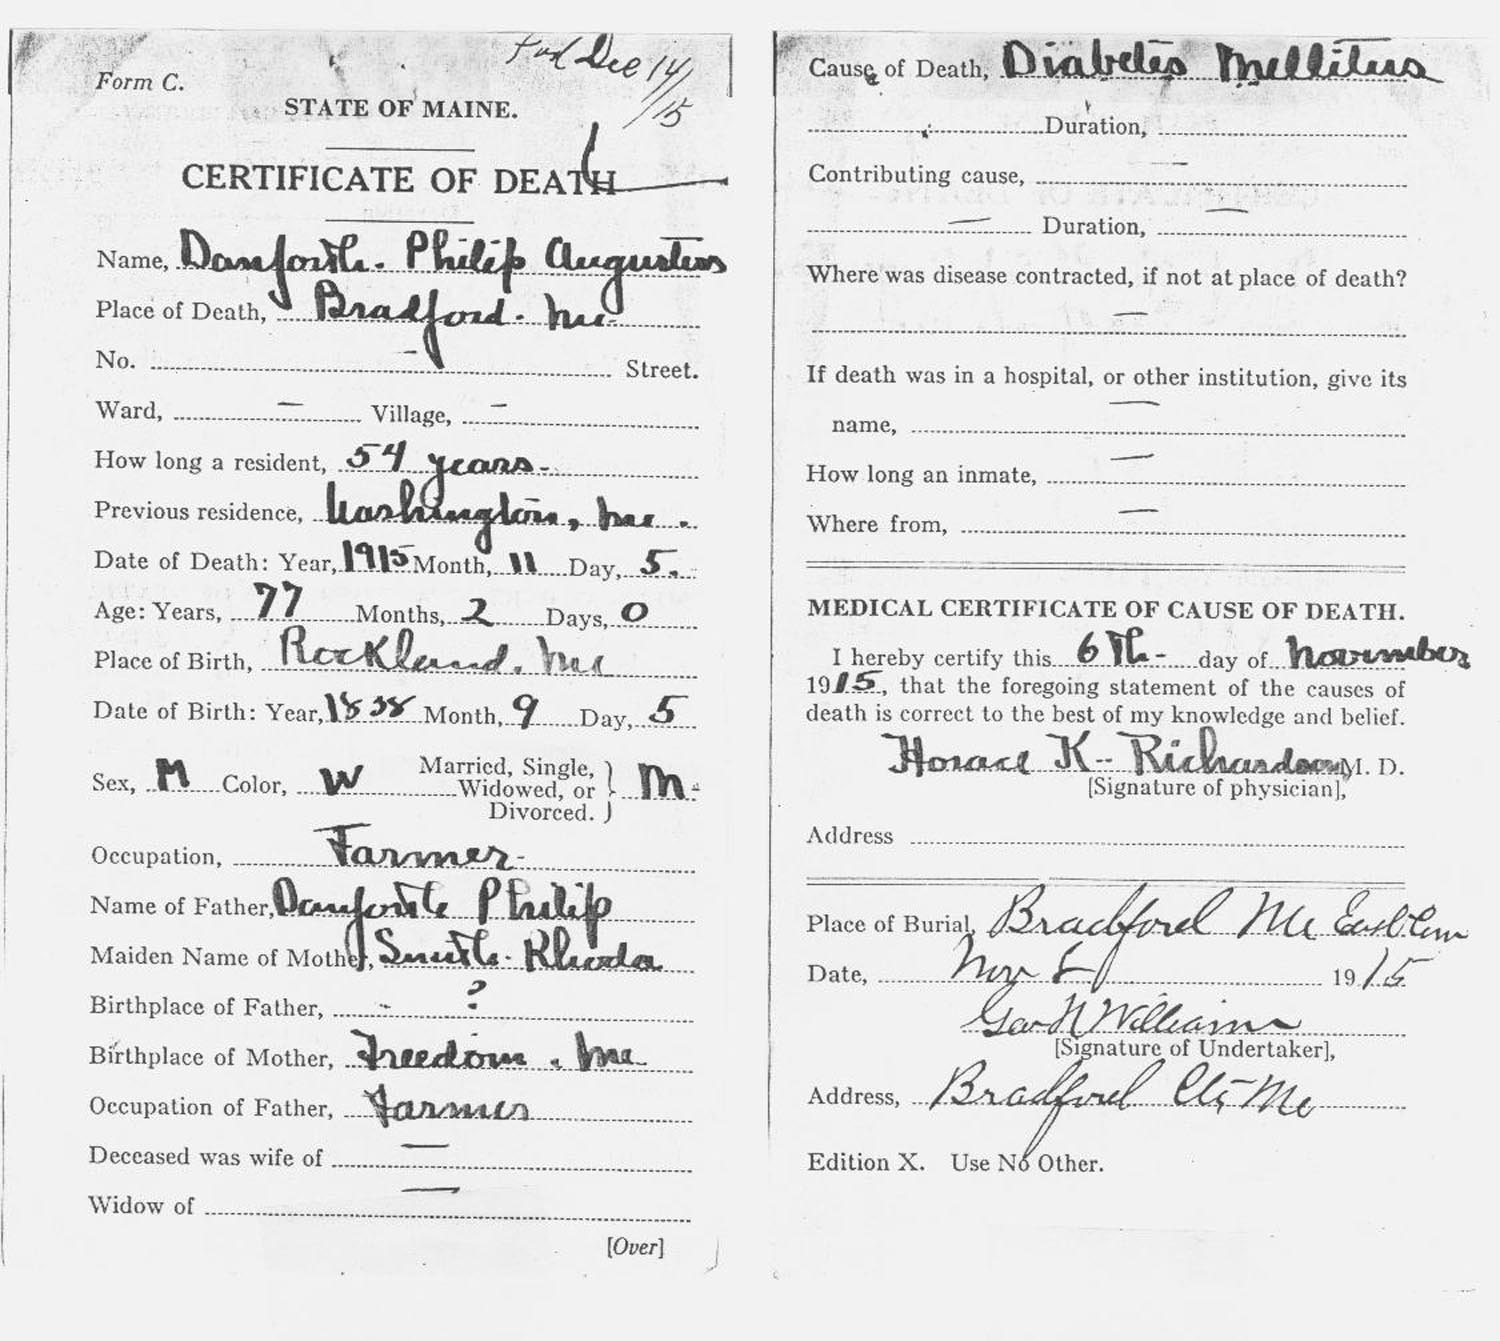 Dec 14/15
Form C.
STATE OF MAINE.
CERTIFICATE OF DEATH
Name, Danforth. Philip Augustus
Place of Death, Bradford. Me.
No. - Street.
Ward, — Village, —
How long a resident, 54 years.
Previous residence, Washington, Me.
Date of Death: Year, 1915 Month, 11 Day, 5.
Age: Years, 77 Months, 2 Days, 0
Place of Birth, Rockland. Me
Date of Birth: Year, 1838 Month, 9 Day, 5
Sex, M Color, W Married, Single, Widowed, or Divorced. } M.
Occupation, Farmer
Name of Father, Danforth Philip
Maiden Name of Mother, Smith. Rhoda
Birthplace of Father, - ?
Birthplace of Mother, Freedom. Me
Occupation of Father, Farmer
Deceased was wife of —
Widow of —
[Over]
Cause of Death, Diabetes Mellitus
Duration,
Contributing cause, —
— Duration, —
Where was disease contracted, if not at place of death?
—
If death was in a hospital, or other institution, give its
name, —
How long an inmate, —
Where from, —
MEDICAL CERTIFICATE OF CAUSE OF DEATH.
I hereby certify this 6Th- day of November
1915, that the foregoing statement of the causes of
death is correct to the best of my knowledge and belief.
Horace K. Richardson M. D.
[Signature of physician],
Address
Place of Burial, Bradford Me East Cem
Date, Nov 8 1915
Geo N Williams
[Signature of Undertaker],
Address, Bradford Ctr Me
Edition X. Use No Other.